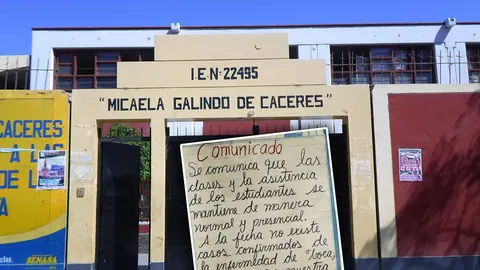 I.E.N: 22495
"MICAELA GALINDO DE CACERES"
CACERES
A LAS
DE L
TA
SENASA
Comunicado
Se comunica que las
clases y la asistencia
de los estudiantes se
mantiene de manera
normal y presencial.
A la fecha no existe
casos confirmados de
la enfermedad de